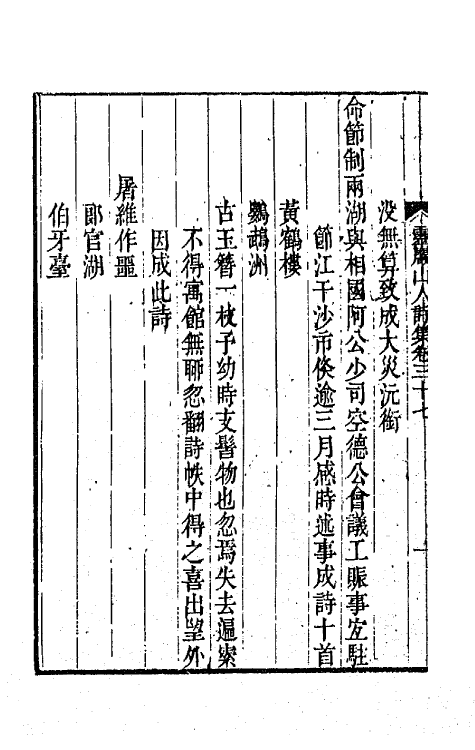 靈巖山人詩集卷三十七
没無算致成大災沅銜
命節制兩湖與相國阿公少司空德公會議工賑事宜駐
節江干沙市倏逾三月感時述事成詩十首
黃鶴樓
鸚鵡洲
古玉簪一枝予幼時支髻物也忽焉失去遍索
不得寓館無聊忽翻詩帙中得之喜出望外
因成此詩
屠維作噩
郎官湖
伯牙臺